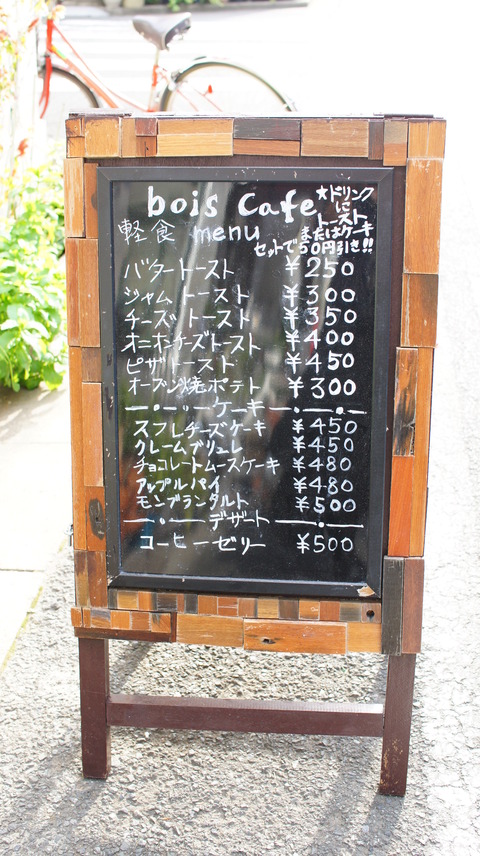 bois Cafe
★ドリンク
に
トースト
またはケーキ
セットで50円引き!!
軽食 menu
バタートースト ¥250
ジャムトースト ¥300
チーズトースト ¥350
オニオンチーズトースト ¥400
ピザトースト ¥450
オーブン焼ポテト ¥300
ケーキ
スフレチーズケーキ ¥450
クレームブリュレ ¥450
チョコレートムースケーキ ¥480
アップルパイ ¥480
モンブランタルト ¥500
デザート
コーヒーゼリー ¥500